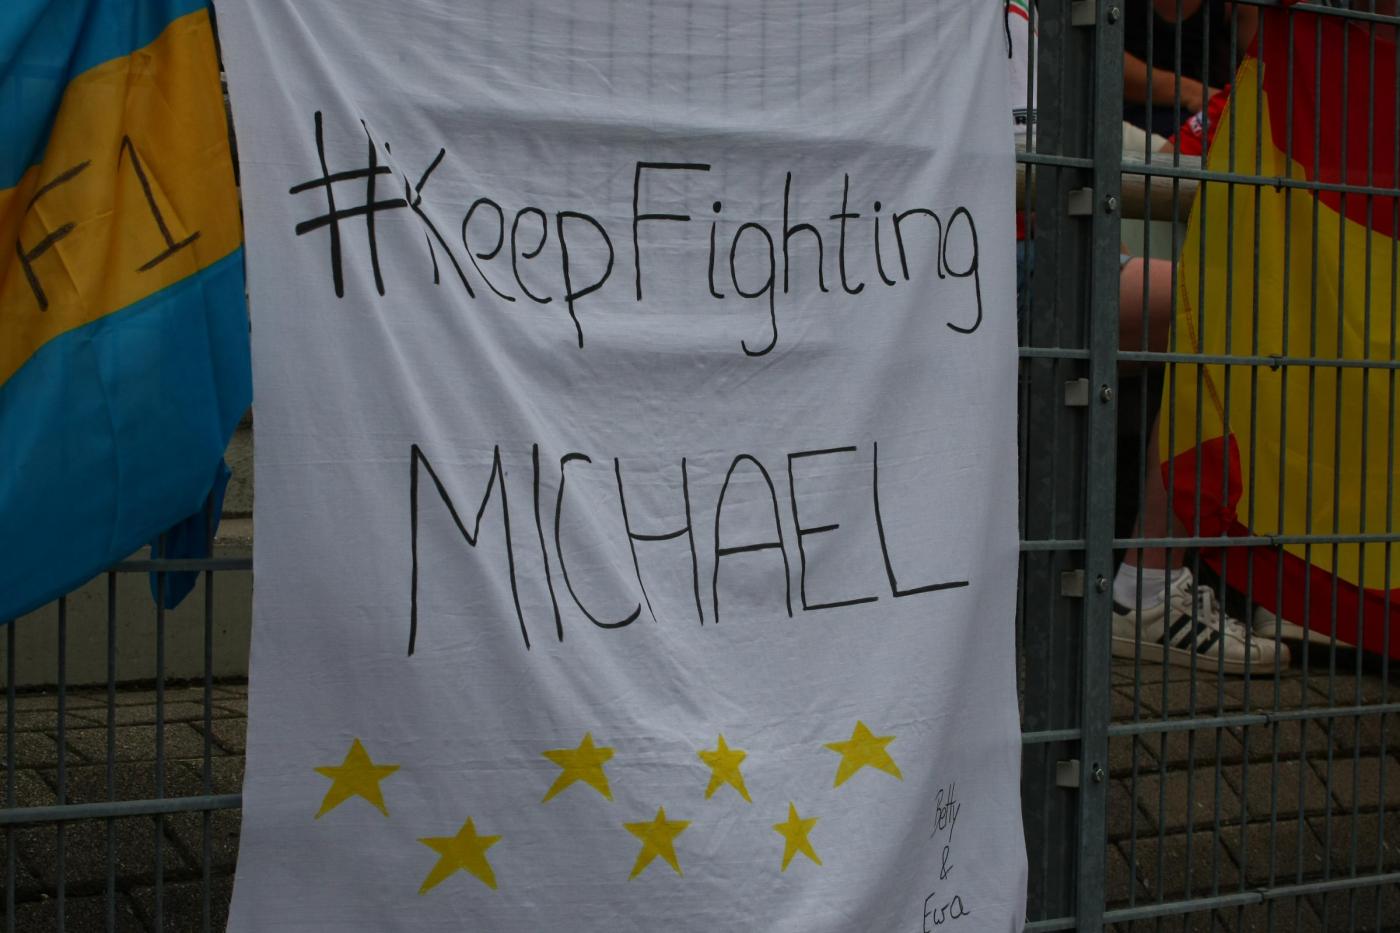 F1
#KeepFighting
MICHAEL
Betty
&
Ewa